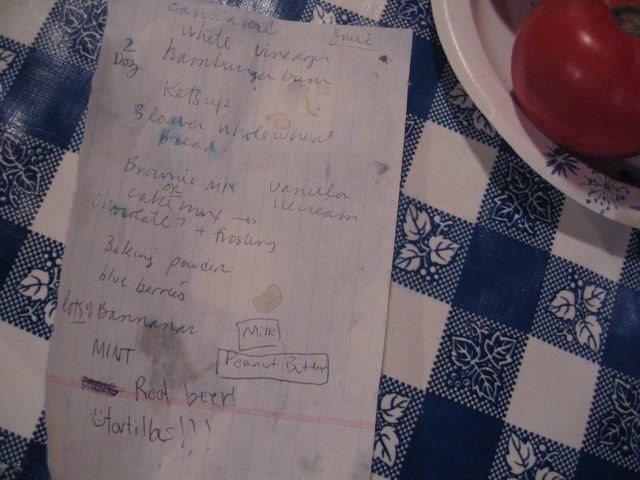 canola oil
white vinegar
2 Doz hamburger buns
Ketsup
3 loaves whole wheat
Bread
Brownie Mix
or
cake mix → vanilla icecream
chocolate? + frosting
Baking powder
blue berries
lots of Bannanas
Milk
MINT
Peanut Butter
Root beer!
tortillas!!!